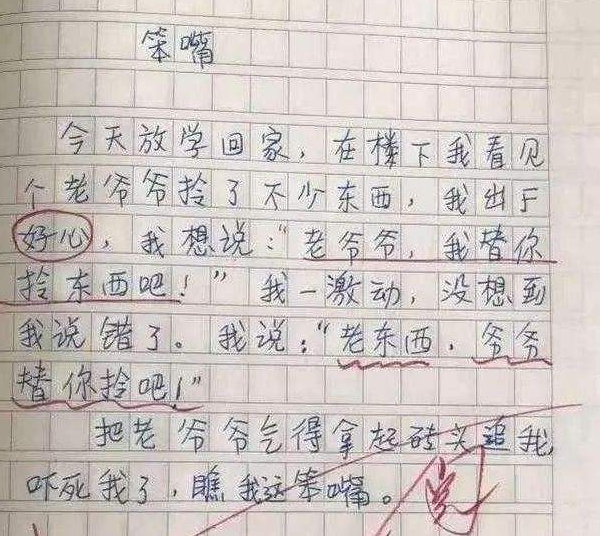 笨嘴
今天放学回家，在楼下我看见
个老爷爷拎了不少东西，我出于
好心，我想说：“老爷爷，我替你
拎东西吧！”我一激动，没想到
我说错了。我说：“老东西，爷爷
替你拎吧！”
把老爷爷气得拿起砖头追我
吓死我了，瞧我这笨嘴。
阅